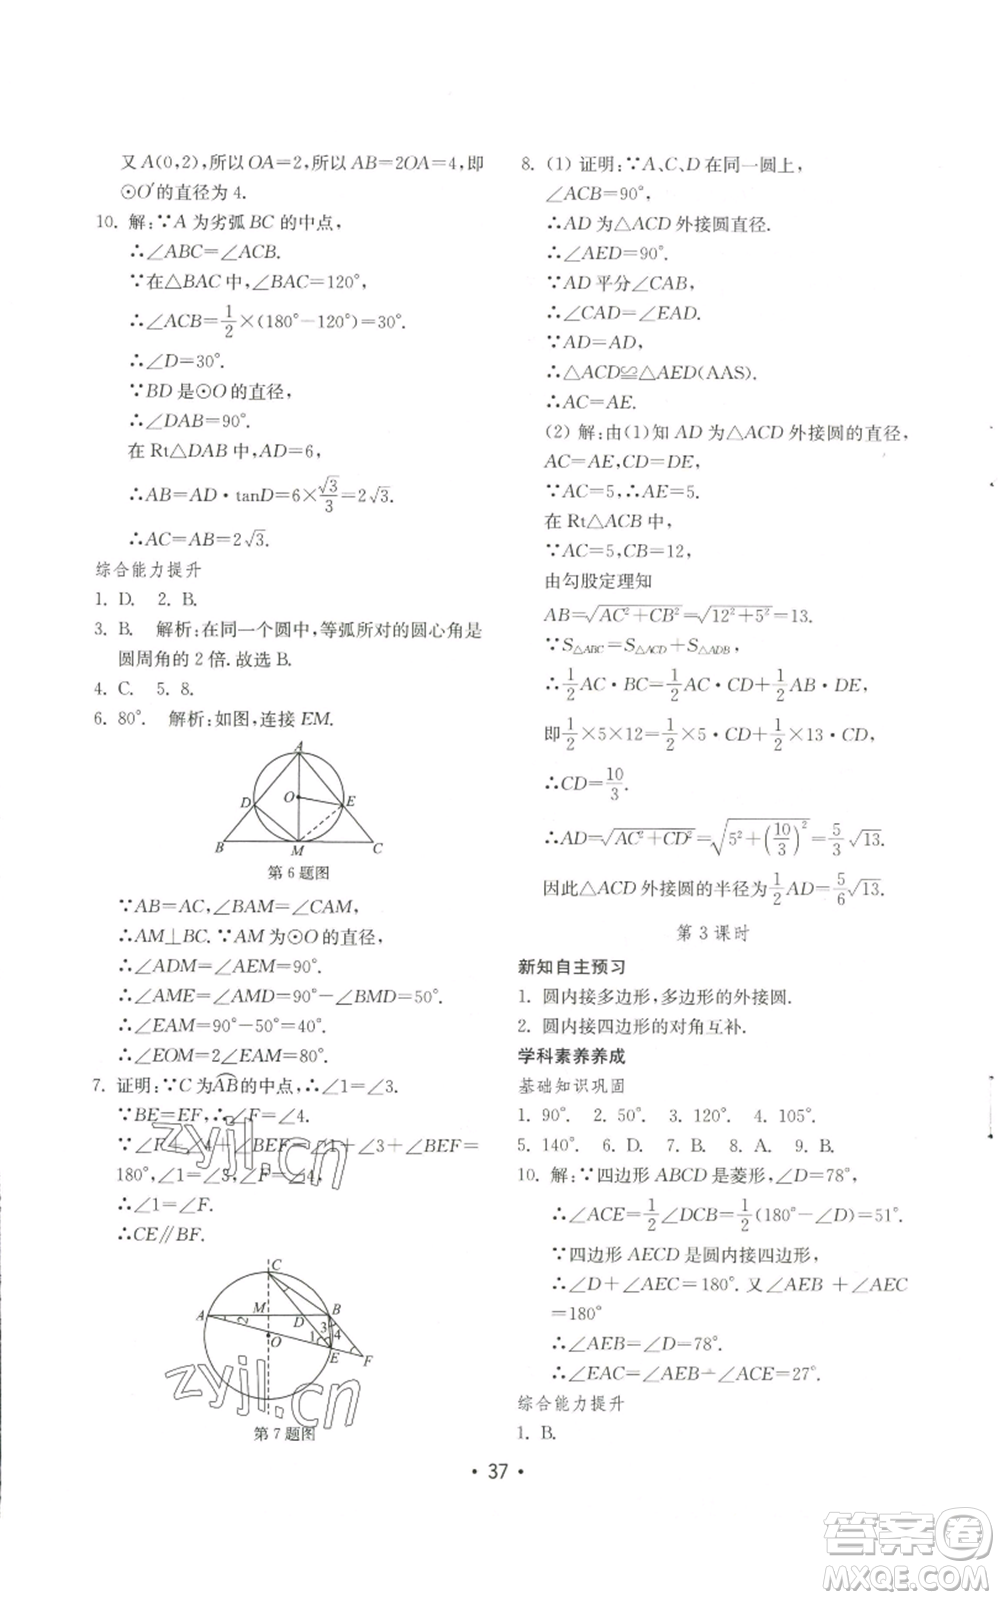 又A(0,2),所以OA=2,所以AB=2OA=4,即
⊙O′的直径为4.
10. 解:∵A为劣弧BC的中点,
∴∠ABC=∠ACB.
∵在△BAC中,∠BAC=120°,
∴∠ACB=1/2×(180°-120°)=30°.
∴∠D=30°.
∵BD是⊙O的直径,
∴∠DAB=90°.
在Rt△DAB中,AD=6,
∴AB=AD·tanD=6×√3/3=2√3.
∴AC=AB=2√3.
综合能力提升
1. D. 2. B.
3. B. 解析:在同一个圆中,等弧所对的圆心角是
圆周角的2倍.故选B.
4. C. 5. 8.
6. 80°. 解析:如图,连接EM.
A
O
D
E
B
M
C
第6题图
∵AB=AC,∠BAM=∠CAM,
∴AM⊥BC.∵AM为⊙O的直径,
∴∠ADM=∠AEM=90°.
∴∠AME=∠AMD=90°-∠BMD=50°.
∴∠EAM=90°-50°=40°.
∴∠EOM=2∠EAM=80°.
7. 证明:∵C为AB的中点,∴∠1=∠3.
∵BE=EF,∴∠F=∠4.
∵∠F+∠4+∠BEF=∠1+∠3+∠BEF=
180°,∠1=∠3,∠F=∠4.
∴∠1=∠F.
∴CE∥BF.
C
A
M
B
D
2
3
1
4
O
E
F
第7题图
8. (1) 证明:∵A、C、D在同一圆上,
∠ACB=90°,
∴AD为△ACD外接圆直径.
∴∠AED=90°.
∵AD平分∠CAB,
∴∠CAD=∠EAD.
∵AD=AD,
∴△ACD≌△AED(AAS).
∴AC=AE.
(2) 解:由(1)知AD为△ACD外接圆的直径,
AC=AE,CD=DE,
∵AC=5,∴AE=5.
在Rt△ACB中,
∵AC=5,CB=12,
由勾股定理知
AB=√(AC²+CB²)=√(12²+5²)=13.
∵S△ABC=S△ACD+S△ADB,
∴1/2AC·BC=1/2AC·CD+1/2AB·DE,
即1/2×5×12=1/2×5·CD+1/2×13·CD,
∴CD=10/3.
∴AD=√(AC²+CD²)=√(5²+(10/3)²)=5/3√13.
因此△ACD外接圆的半径为1/2AD=5/6√13.
第3课时
新知自主预习
1. 圆内接多边形,多边形的外接圆.
2. 圆内接四边形的对角互补.
学科素养养成
基础知识巩固
1. 90°. 2. 50°. 3. 120°. 4. 105°.
5. 140°. 6. D. 7. B. 8. A. 9. B.
10. 解:∵四边形ABCD是菱形,∠D=78°,
∴∠ACE=1/2∠DCB=1/2(180°-∠D)=51°.
∵四边形AECD是圆内接四边形,
∴∠D+∠AEC=180°.又∠AEB+∠AEC
=180°
∴∠AEB=∠D=78°.
∴∠EAC=∠AEB-∠ACE=27°.
综合能力提升
1. B.
• 37 •
zyjl.cn
zyjl.cn
答案圈
MXQE.COM